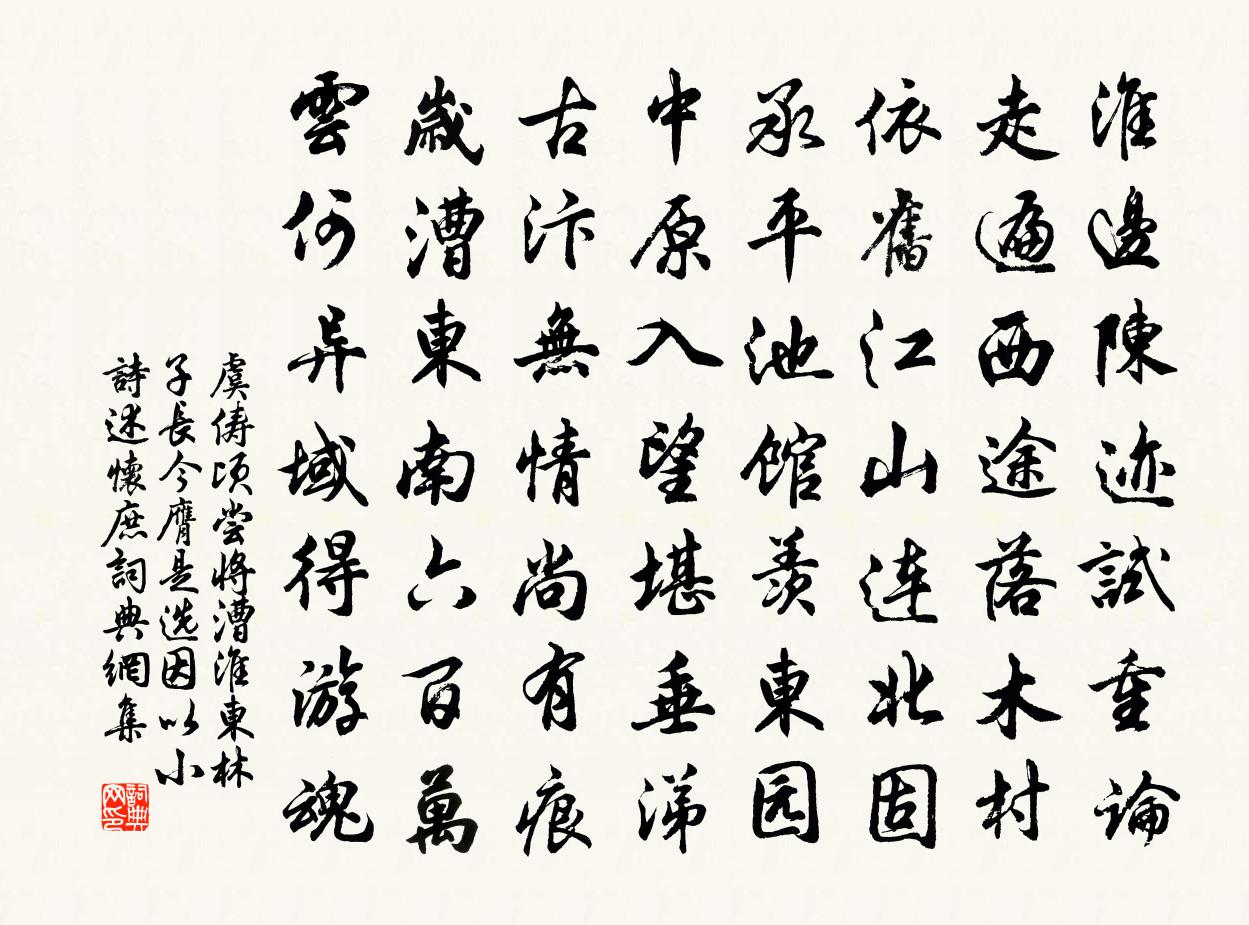 淮邊陳迹試重論
走遍西途落木村
依舊江山连北固
承平池馆羡東园
中原入望堪垂涕
古汴無情尚有痕
歲漕東南六百萬
雲何异域得游魂
虞俦頃嘗將漕淮東林
子長今膺是选因以小
詩述懷庶詞典網集
詞典网印